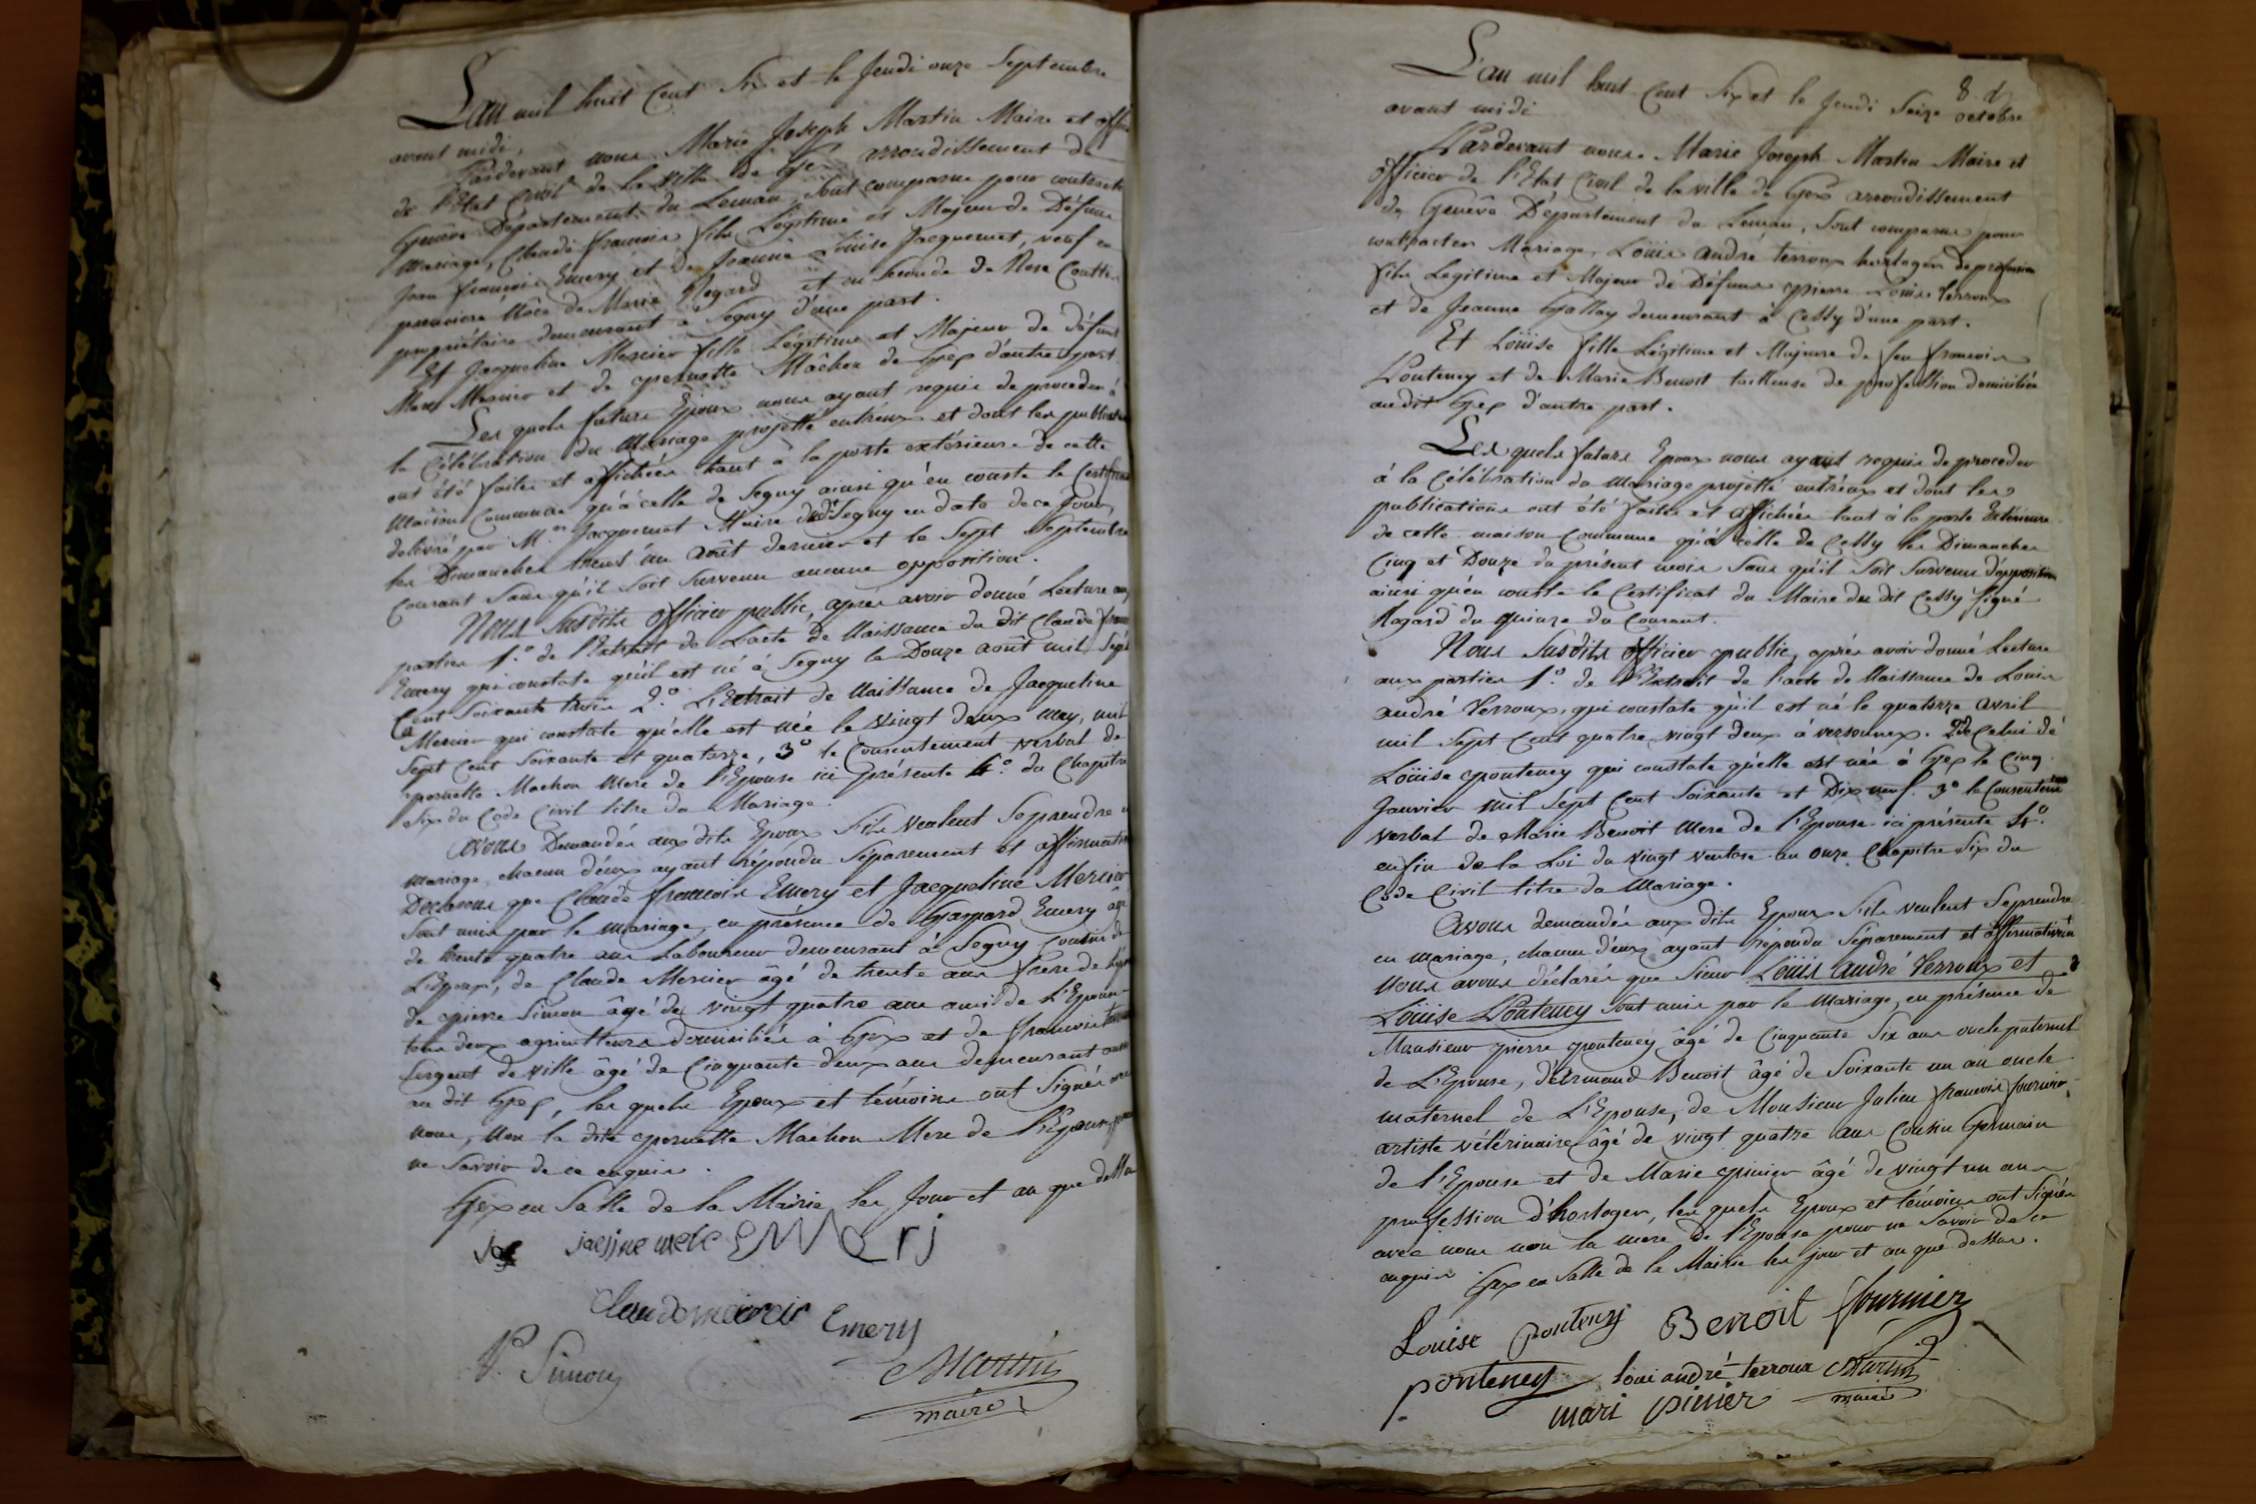 L'an mil huit Cent Six et le Jeudi onze Septembre
avant midi,
Pardevant nous Marie Joseph Martin Maire et
de l'Etat Civil de la Ville de Gex arrondissement de
Genève Département du Leman, Sont comparus pour contracter
Mariage, Claude françois fils Légitime et Majeur de Défunt
Jean françois Emery et de Jeanne Loüise Jacquemet, veuf en
premiere Nôce de Marie Regard et en Seconde de Rose
propriétaire demeurant à Segny d'une part.
Et Jacqueline Mercier fille Légitime et Majeur de défunt
Mercier et de pernette Mâchon de Gex d'autre part
Les quels futurs Epoux nous ayant requis de proceder à
la Célébration du Mariage projetté entr'eux et dont les
ont été faites et affichées tant à la porte extérieure de cette
Maison Commune qu'à celle de Segny ainsi qu'en conste le
delivré par Mr Jacquemet Maire dudt Segny en date de ce Jour,
les Dimanches trent'un Août dernier et le Sept Septembre
Courant Sans qu'il Soit Survenu aucune opposition.
Nous Susdits officier public, après avoir donné Lecture aux
parties 1.° de l'Extrait de L'acte de Naissance du dit Claude
Emery qui constate qu'il est né à Segny le Douze août mil Sept
Cent Soixante trois 2.° L'Extrait de Naissance de Jacqueline
Mercier qui constate qu'elle est née le vingt deux may, mil
Sept Cent Soixante et quatorze, 3° le Consentement verbal de
pernette Machon Mere de l'Epouse ici présente 4.° du Chapitre
Six du Code Civil titre du Mariage.
Avons Demandés aux dits Epoux S'ils veulent Se prendre
mariage, chacun d'eux ayant répondu Séparement et
Declarons que Claude françois Emery et Jacqueline Mercier
Sont unis par le mariage, en présence de Gaspard Emery âgé
de trente quatre ans Laboureur demeurant à Segny Cousin de
L'Epoux, de Claude Mercier âgé de trente ans frere de
de pierre Simon âgé de vingt quatre ans ami de L'Epouse
tous deux agriculteurs domiciliés à Gex et de françois
Sergent de ville âgé de Cinquante deux ans demeurant
au dit Gex, les quels Epoux et témoins ont Signés avec
nous, Non la dite pernette Machon Mere de l'Epouse pour
ne Savoir de ce enquise.
Gex en Salle de la Mairie les Jour et an que dessus
Emery
P. Simon
Martin
maire
8.
L'an mil huit Cent Six et le Jeudi Seize octobre
avant midi
Pardevant nous Marie Joseph Martin Maire et
officier de l'Etat Civil de la ville de Gex arrondissement
de Genève Département du Leman, Sont comparus pour
contracter Mariage, Loüis andré terroux horloger de profession
fils Legitime et Majeur de Défunt pierre Loüis terroux
et de Jeanne Gallay demeurant à Cessy d'une part.
Et Loüise fille Légitime et Majeure de feu françois
Ponteney et de Marie Benoit tailleuse de profession domiciliée
audit Gex d'autre part.
Les quels futurs Epoux nous ayant requis de proceder
à la Célébration du Mariage projetté entr'eux et dont les
publications ont été faites et affichées tant à la porte Extérieure
de cette maison Commune qu'à celle de Cessy les Dimanches
Cinq et Douze du présent mois Sans qu'il Soit Survenu d'opposition
ainsi qu'en conste le Certificat du Maire du dit Cessy Signé
Regard du quinze du Courant.
Nous Susdits officier public, après avoir donné Lecture
aux parties 1.° de l'Extrait de l'acte de Naissance de Louis
andré Terroux, qui constate qu'il est né le quatorze avril
mil Sept Cent quatre vingt deux à versonnex. 2° Celui de
Loüise ponteney qui constate qu'elle est née à Gex le Cinq
Janvier mil Sept Cent Soixante et Dix neuf. 3° le Consentement
verbal de Marie Benoit Mere de l'Epouse ici présente 4.°
enfin de la Loi du vingt ventose an onze Chapitre Six du
Code Civil titre du Mariage.
Avons demandés aux dits Epoux S'ils veulent Se prendre
en mariage, chacun d'eux ayant répondu Séparement et affirmativement
Nous avons déclarés que Sieur Loüis André Terroux et
Loüise Ponteney Sont unis par le Mariage, en présence de
Monsieur pierre ponteney âgé de Cinquante Six ans oncle paternel
de L'Epouse, d'Armand Benoit âgé de Soixante un an oncle
maternel de L'Epouse, de Monsieur Julien françois fournier,
artiste vétérinaire âgé de vingt quatre ans Cousin Germain
de l'Epouse et de Marie pinier âgé de vingt un ans
profession d'horloger, les quels Epoux et témoins ont Signés
avec nous non la mere de l'Epouse pour ne Savoir de ce
enquise Gex en Salle de la Mairie les jour et an que dessus.
Louise ponteney Benoit fournier
ponteney loui andré terroux Martin
mari pinier maire